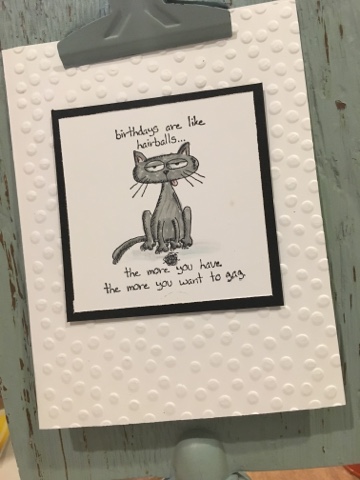 birthdays are like
hairballs...
the more you have
the more you want to gag.